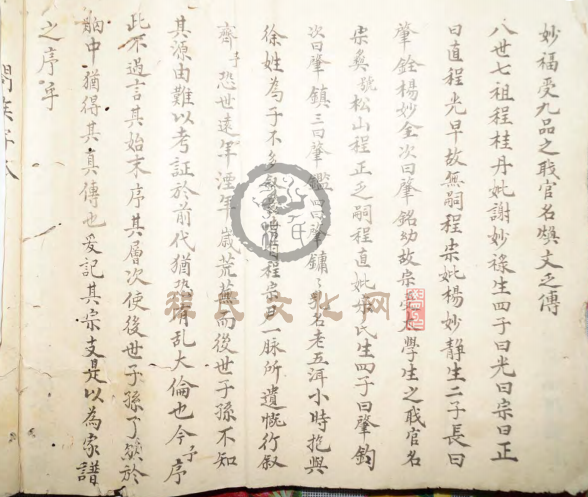 妙福受九品之職官名煥文乏傳
八世七祖程桂丹妣謝妙祿生四子曰光曰宗曰正
曰直程光早故無嗣程宗妣楊妙靜生二子長曰
肇銓楊妙全次曰肇銘幼故宗受太學生之職官名
宗奐號松山程正乏嗣程直妣氏生四子曰肇鈞
次曰肇鎮三曰肇鑑四曰肇鏞乳名老五洱小時抱與
徐姓為子不多程宗尹一脉所遺慨行叙
齊子恐世遠年湮年歲荒蕪而後世子孫不知
其源由難以考証於前代猶恐有乱大倫也今子序
此不過言其始末序其層次使後世子孫了然於
胸中猶得其真傳也爰記其宗支是以為家譜
之序耳
程氏文化网